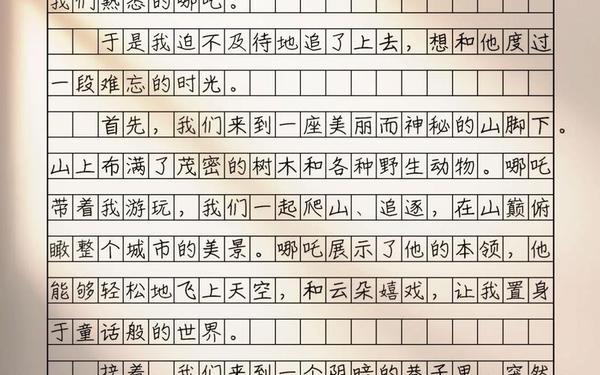 我们熟悉的哪吒。
于是我迫不及待地追了上去，想和他度过
一段难忘的时光。
首先，我们来到一座美丽而神秘的山脚下。
山上布满了茂密的树木和各种野生动物。哪吒
带着我游玩，我们一起爬山、追逐，在山巅俯
瞰整个城市的美景。哪吒展示了他的本领，他
能够轻松地飞上天空，和云朵嬉戏，让我置身
于童话般的世界。
接着，我们来到一个阴暗的巷子里，突然